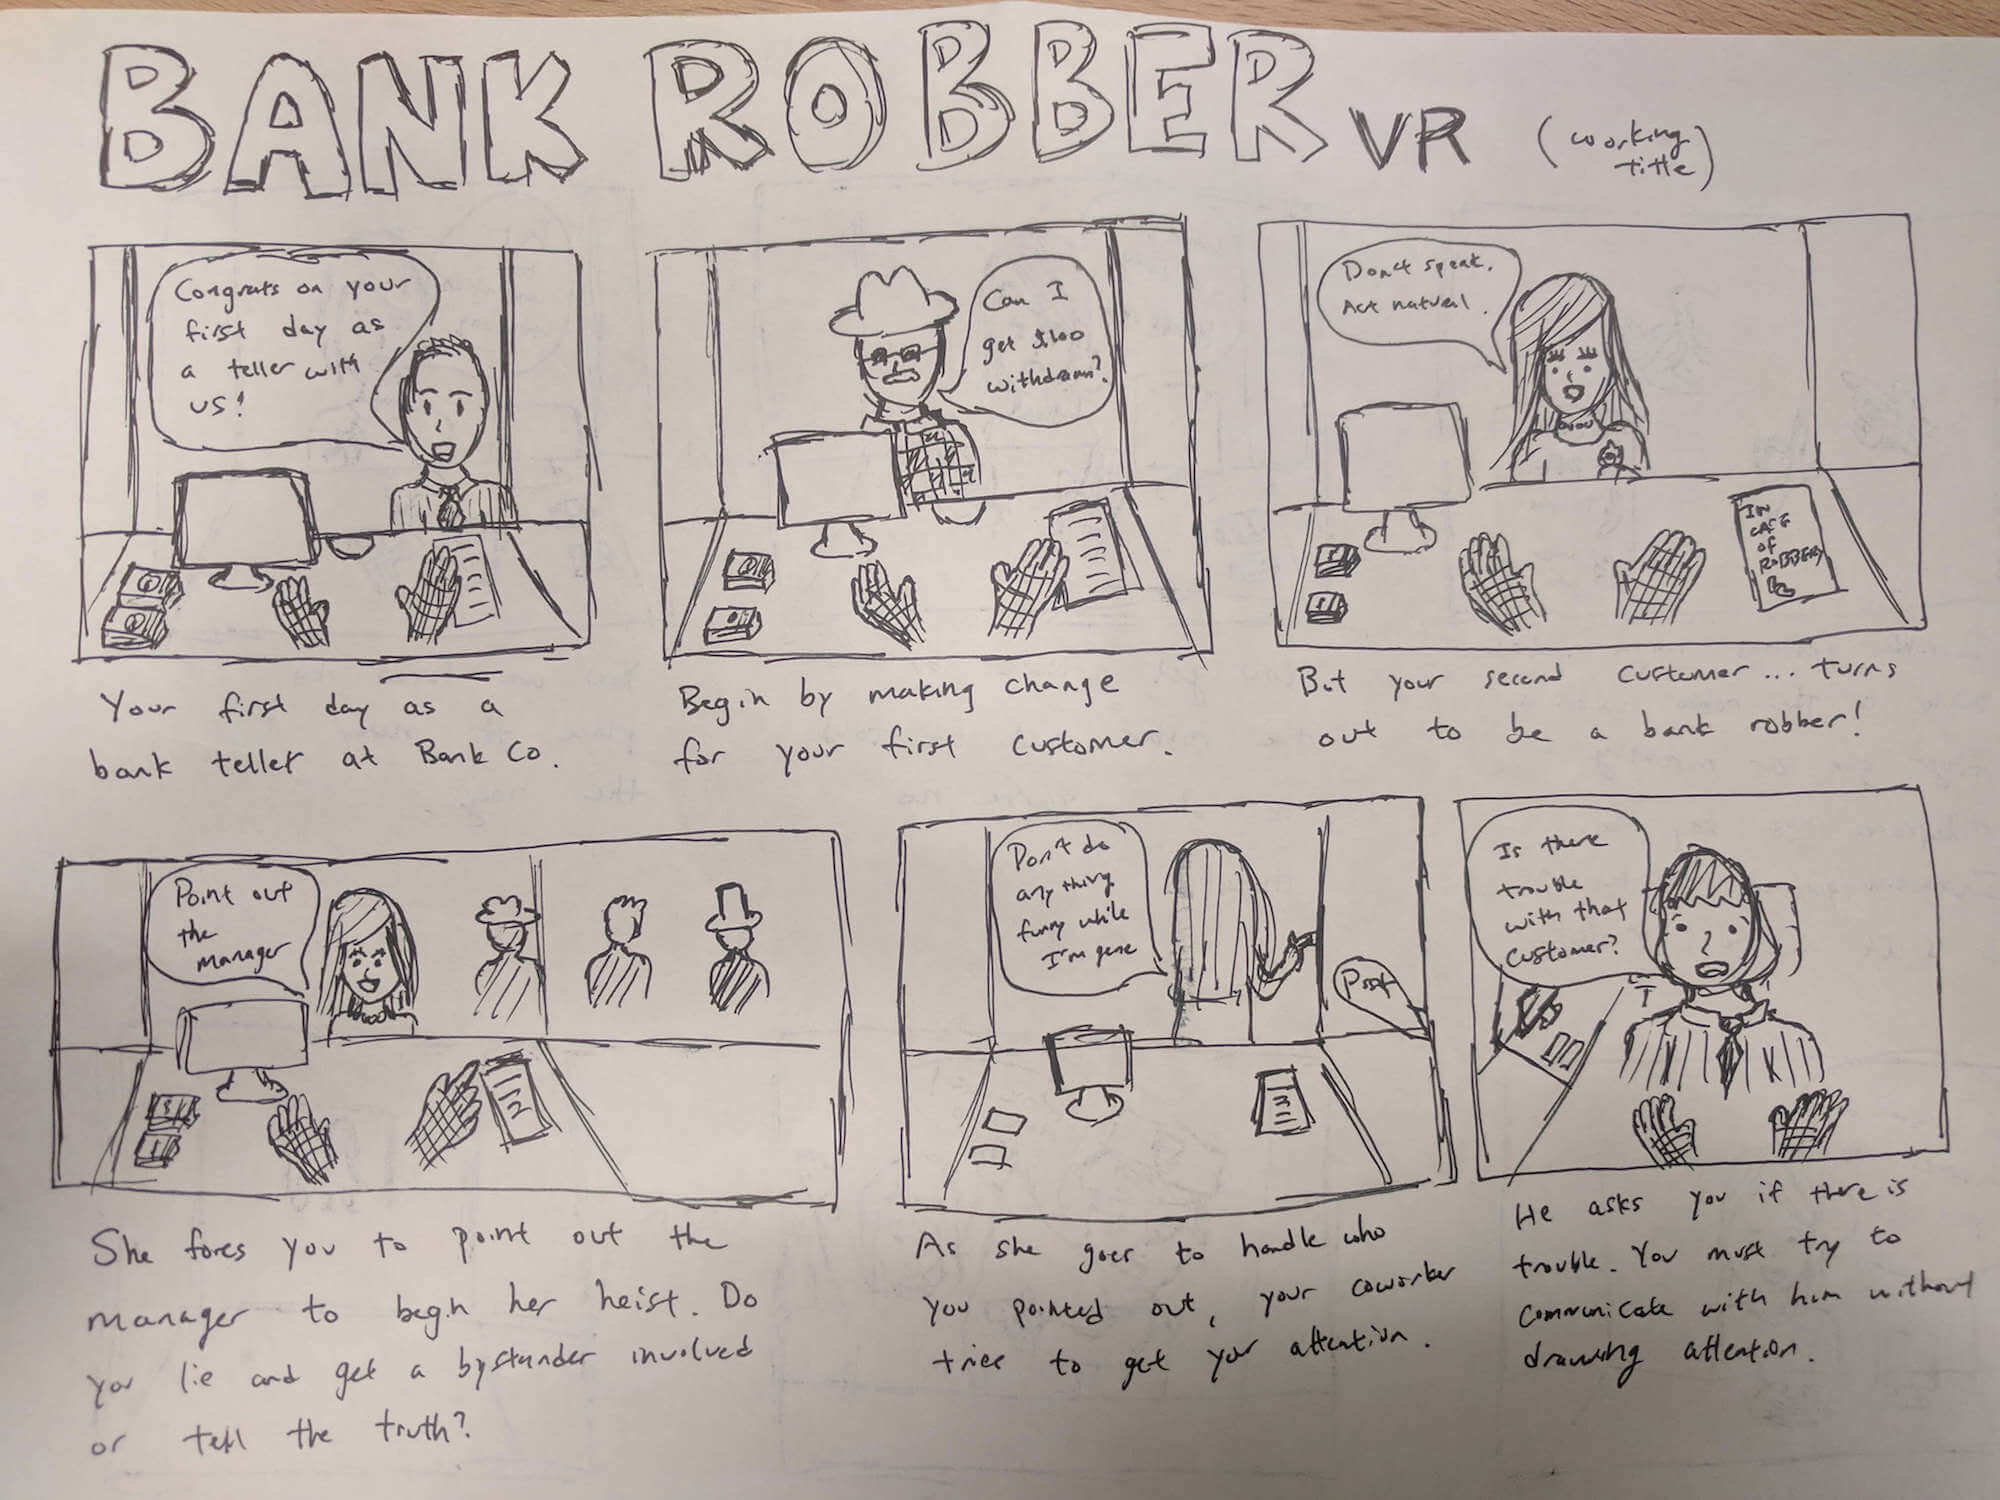 BANK ROBBER VR (working
title)
Congrats on your
first day as
a teller with
us!
Your first day as a
bank teller at Bank Co.
Can I
get $100
withdrawn?
Begin by making change
for your first customer.
Don't speak.
Act natural.
IN
CASE
OF
ROBBERY
But your second customer... turns
out to be a bank robber!
Point out
the
manager
She fores you to point out the
manager to begin her heist. Do
you lie and get a bystander involved
or tell the truth?
Don't do
anything
funny while
I'm gone
Psst
As she goes to handle who
you pointed out, your coworker
tries to get your attention.
Is there
trouble
with that
customer?
He asks you if there is
trouble. You must try to
communicate with him without
drawing attention.